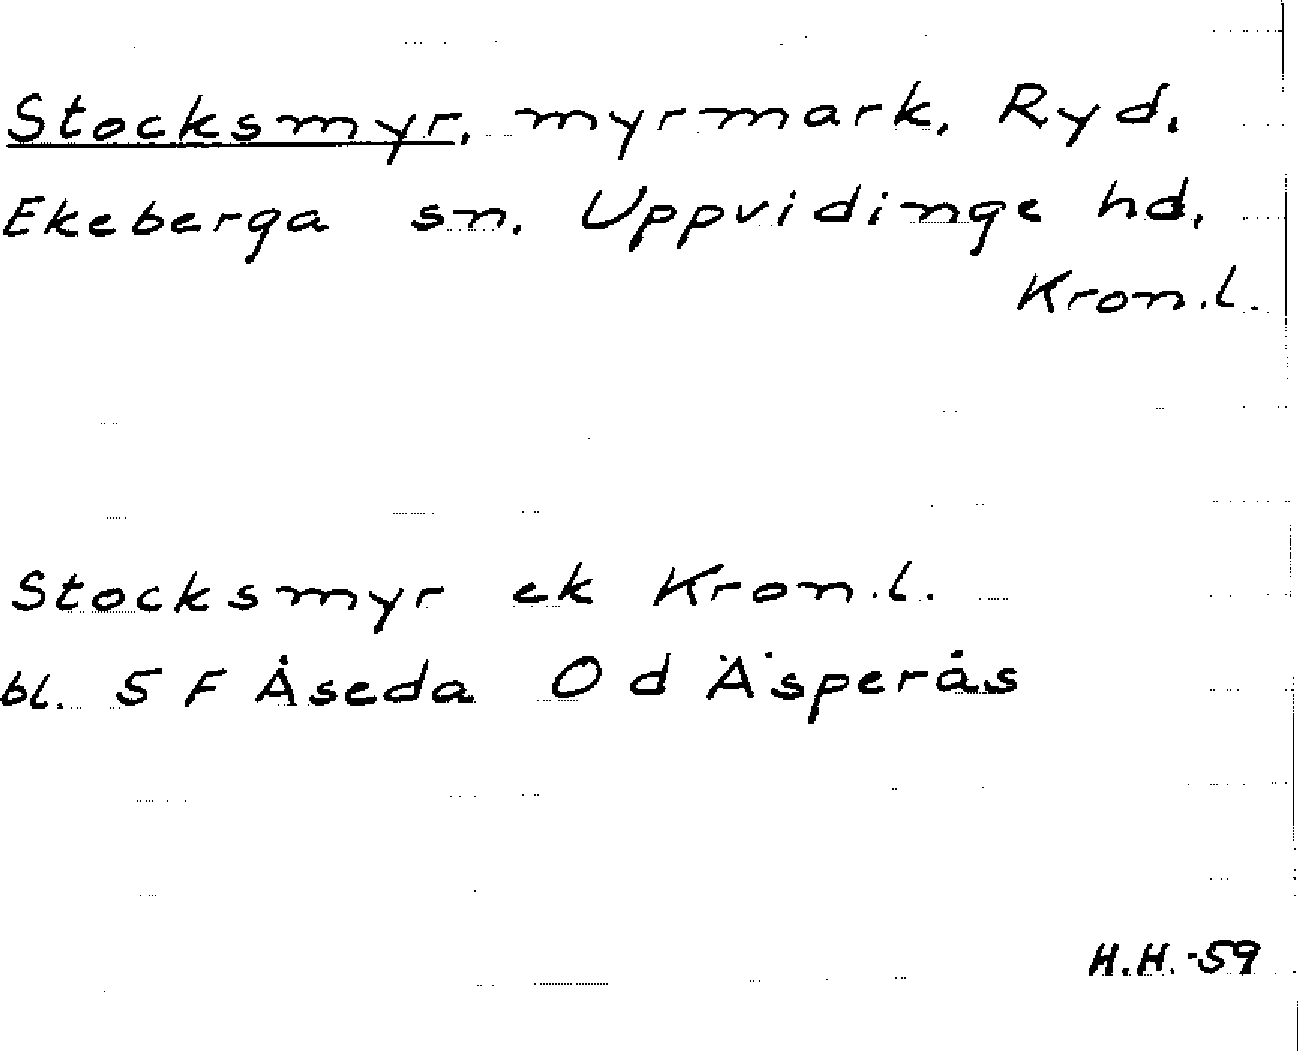 Stocksmyr, myrmark, Ryd,
Ekeberga sn. Uppvidinge hd,
Kron.l.
Stocksmyr ek Kron.l.
bl. 5 F Åseda O d Äsperås
H.H.-59